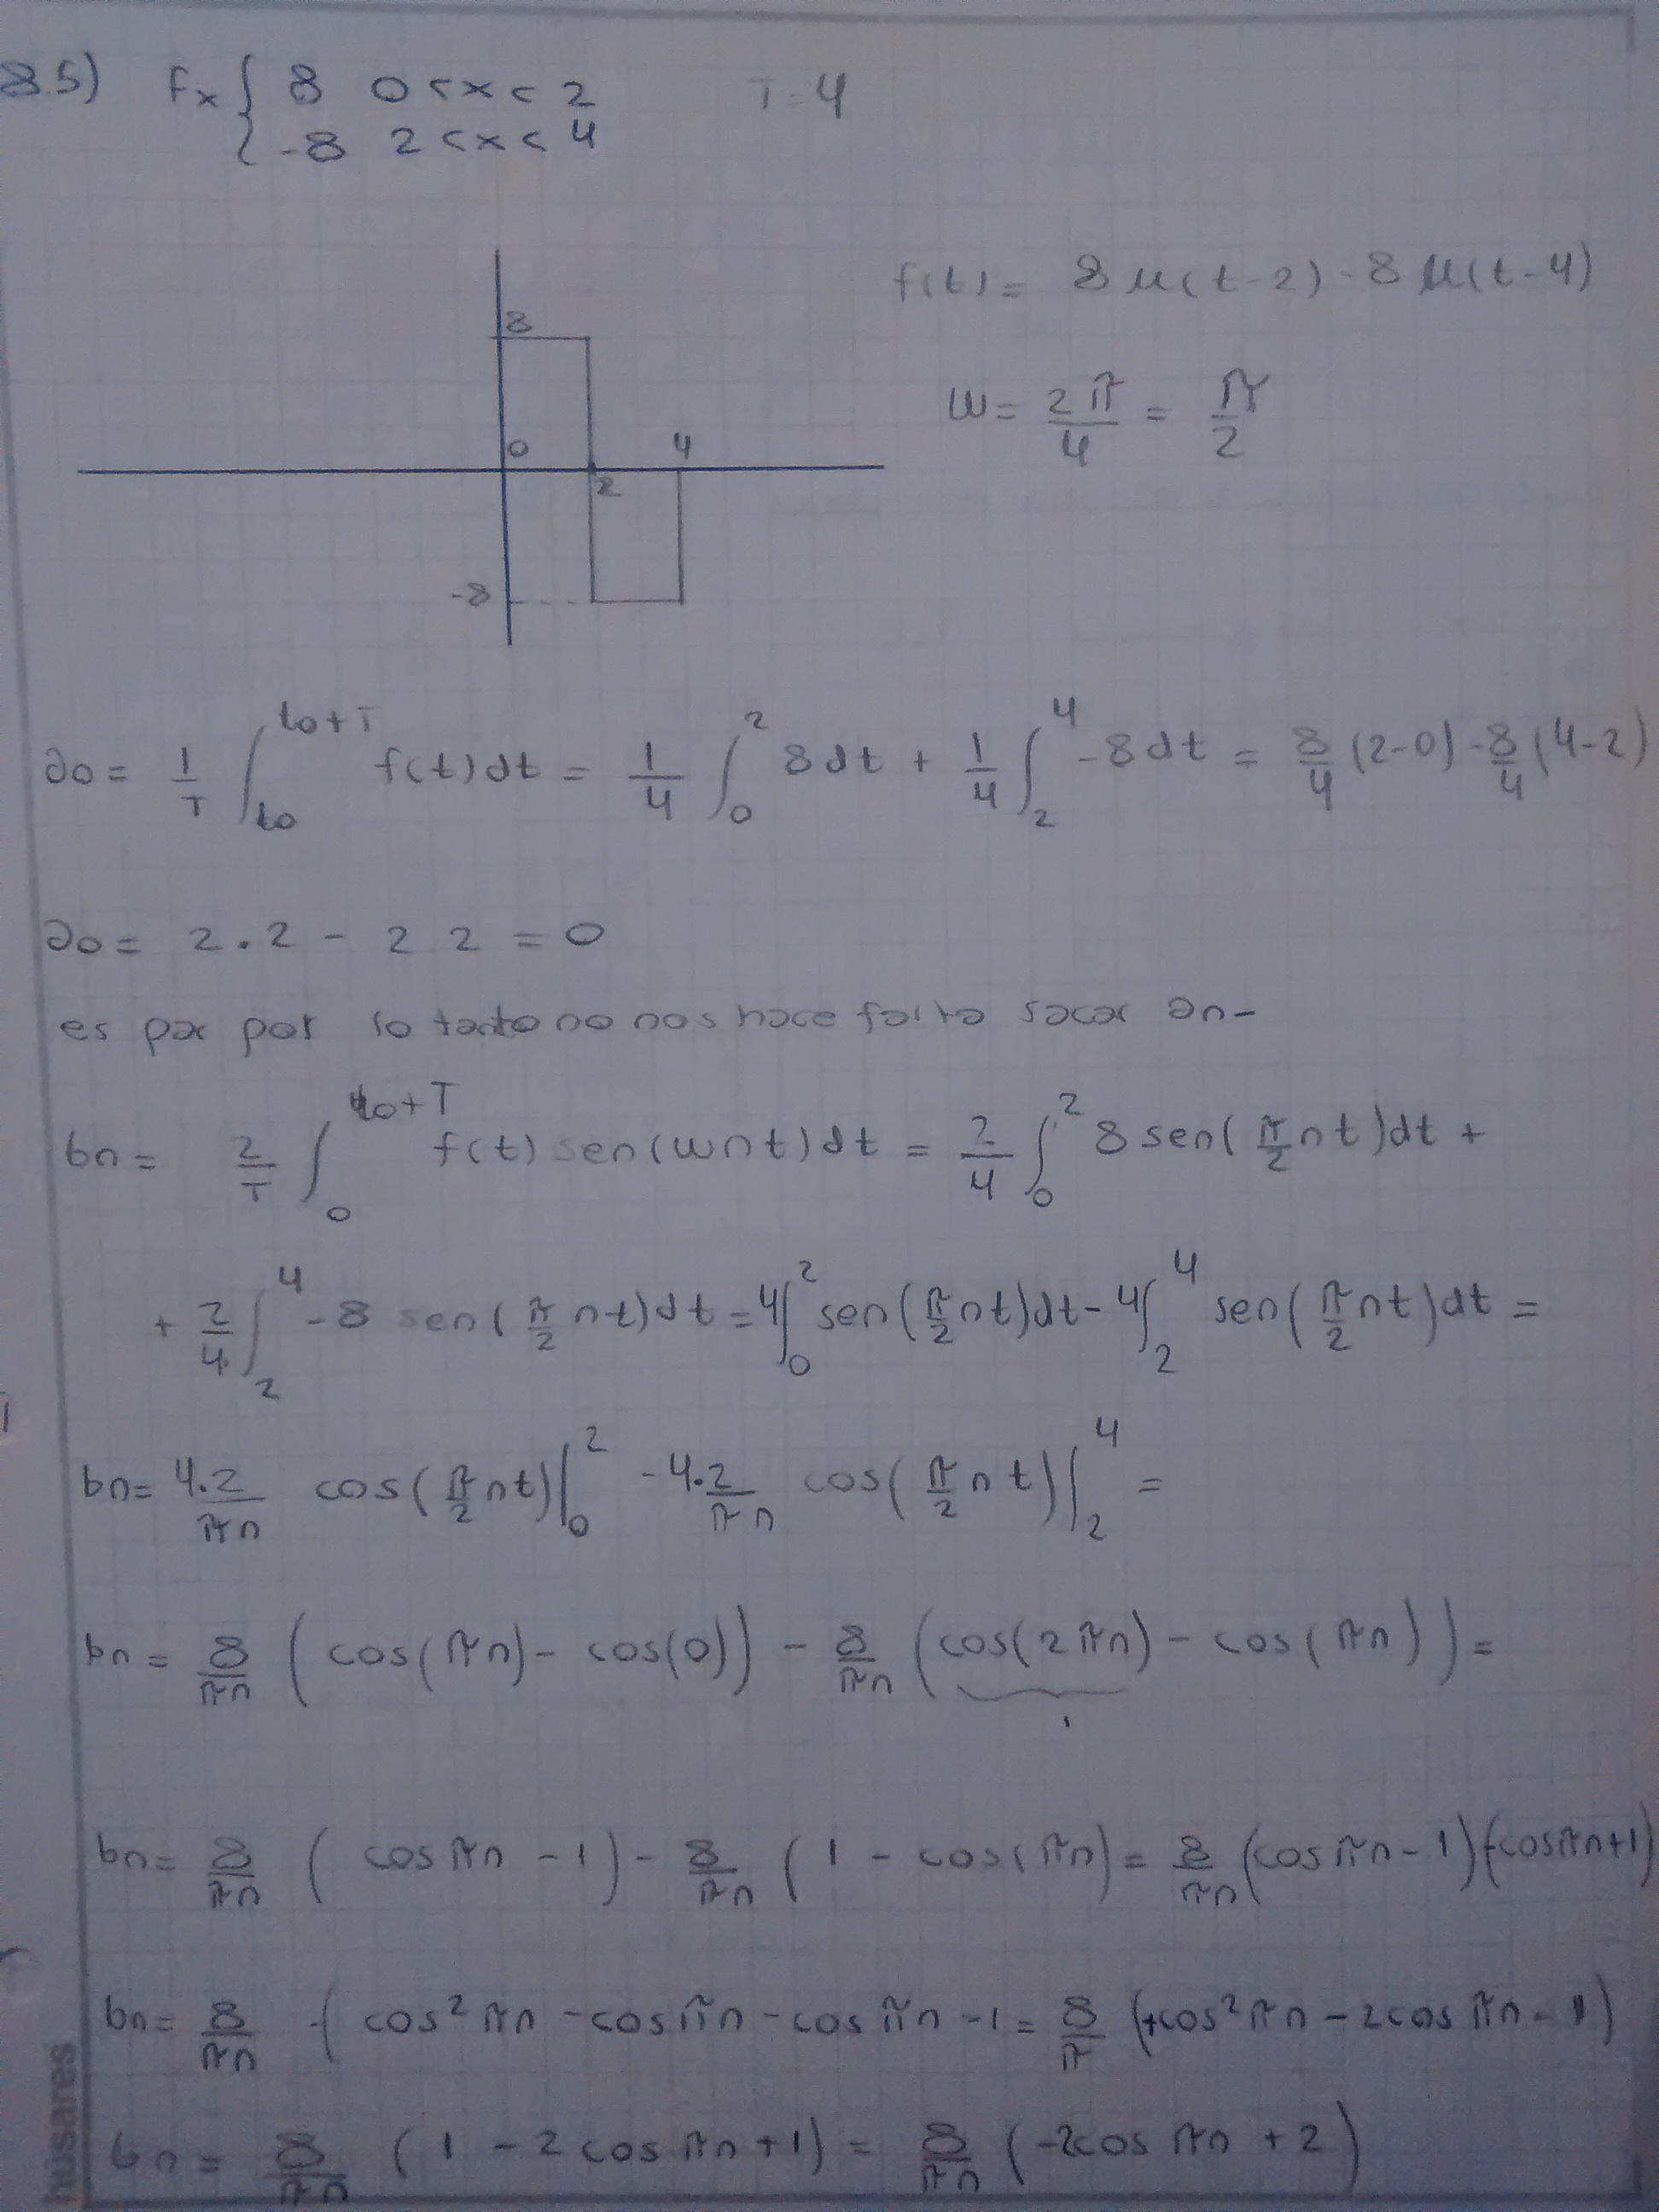 85) fx { 8 0<x<2 T=4
-8 2<x<4
f(t) = 8 μ(t-2) - 8 μ(t-4)
8
ω = 2π/4 = π/2
0 4
2
-8
a0 = 1/T ∫_t0^t0+T f(t)dt = 1/4 ∫_0^2 8dt + 1/4 ∫_2^4 -8dt = 8/4 (2-0) - 8/4 (4-2)
a0 = 2.2 - 2 2 = 0
es par por lo tanto no nos hace falta sacar an-
bn = 2/T ∫_0^t0+T f(t) sen(ωnt)dt = 2/4 ∫_0^2 8 sen(π/2 nt)dt +
+ 2/4 ∫_2^4 -8 sen(π/2 nt)dt = 4∫_0^2 sen(π/2 nt)dt - 4∫_2^4 sen(π/2 nt)dt =
bn = 4.2/πn cos(π/2 nt)|_0^2 - 4.2/πn cos(π/2 nt)|_2^4 =
bn = 8/πn (cos(πn) - cos(0)) - 8/πn (cos(2πn) - cos(πn)) =
1
bn = 8/πn (cosπn - 1) - 8/πn (1 - cos(πn) = 8/πn (cosπn - 1)(-cosπn+1)
bn = 8/πn -( cos²πn - cosπn - cosπn - 1 = 8/π (+cos²πn - 2cosπn - 1)
bn = 8/πn (1 - 2cosπn + 1) = 8/πn (-2cosπn + 2)
husares